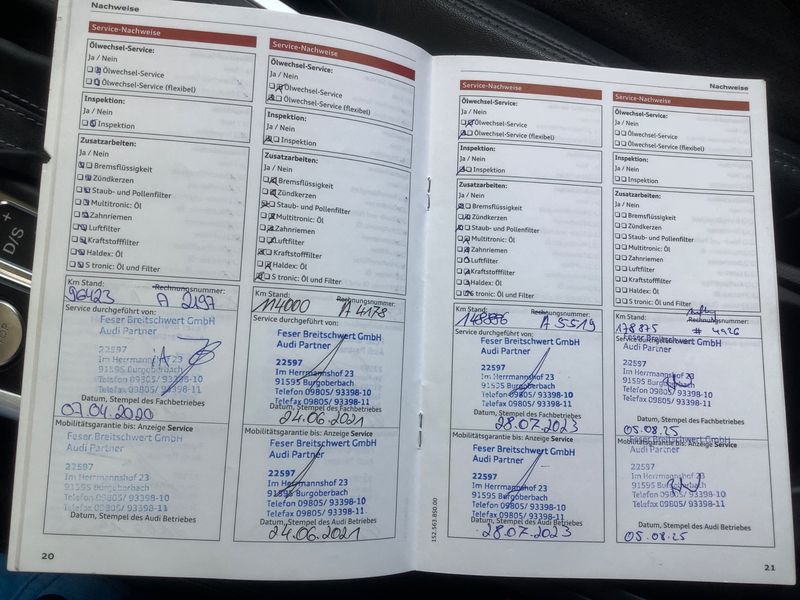 Nachweise
Service-Nachweise
Ölwechsel-Service:
Ja / Nein
Ölwechsel-Service
Ölwechsel-Service (flexibel)
Inspektion:
Ja / Nein
Inspektion
Zusatzarbeiten:
Ja / Nein
Bremsflüssigkeit
Zündkerzen
Staub- und Pollenfilter
Multitronic: Öl
Zahnriemen
Luftfilter
Kraftstofffilter
Haldex: Öl
S tronic: Öl und Filter
Km Stand: Rechnungsnummer:
96423 A 2197
Service durchgeführt von:
Feser Breitschwert GmbH
Audi Partner
22597
Im Herrmannshof 23
91595 Burgoberbach
Telefon 09805/ 93398-10
Telefax 09805/ 93398-11
07.04.2020
Datum, Stempel des Fachbetriebes
Mobilitätsgarantie bis: Anzeige Service
Feser Breitschwert GmbH
Audi Partner
22597
Im Herrmannshof 23
91595 Burgoberbach
Telefon 09805/ 93398-10
Telefax 09805/ 93398-11
Datum, Stempel des Audi Betriebes
20
Service-Nachweise
Ölwechsel-Service:
Ja / Nein
Ölwechsel-Service
Ölwechsel-Service (flexibel)
Inspektion:
Ja / Nein
Inspektion
Zusatzarbeiten:
Ja / Nein
Bremsflüssigkeit
Zündkerzen
Staub- und Pollenfilter
Multitronic: Öl
Zahnriemen
Luftfilter
Kraftstofffilter
Haldex: Öl
S tronic: Öl und Filter
Km Stand: Rechnungsnummer:
114000 A 4178
Service durchgeführt von:
Feser Breitschwert GmbH
Audi Partner
22597
Im Herrmannshof 23
91595 Burgoberbach
Telefon 09805/ 93398-10
Telefax 09805/ 93398-11
Datum, Stempel des Fachbetriebes
24.06.2021
Mobilitätsgarantie bis: Anzeige Service
Feser Breitschwert GmbH
Audi Partner
22597
Im Herrmannshof 23
91595 Burgoberbach
Telefon 09805/ 93398-10
Telefax 09805/ 93398-11
Datum, Stempel des Audi Betriebes
24.06.2021
152.563.850.00
Nachweise
Service-Nachweise
Ölwechsel-Service:
Ja / Nein
Ölwechsel-Service
Ölwechsel-Service (flexibel)
Inspektion:
Ja / Nein
Inspektion
Zusatzarbeiten:
Ja / Nein
Bremsflüssigkeit
Zündkerzen
Staub- und Pollenfilter
Multitronic: Öl
Zahnriemen
Luftfilter
Kraftstofffilter
Haldex: Öl
S tronic: Öl und Filter
Km Stand: Rechnungsnummer:
A 5519
Service durchgeführt von:
Feser Breitschwert GmbH
Audi Partner
22597
Im Herrmannshof 23
91595 Burgoberbach
Telefon 09805/ 93398-10
Telefax 09805/ 93398-11
Datum, Stempel des Fachbetriebes
28.07.2023
Mobilitätsgarantie bis: Anzeige Service
Feser Breitschwert GmbH
Audi Partner
22597
Im Herrmannshof 23
91595 Burgoberbach
Telefon 09805/ 93398-10
Telefax 09805/ 93398-11
Datum, Stempel des Audi Betriebes
28.07.2023
Service-Nachweise
Ölwechsel-Service:
Ja / Nein
Ölwechsel-Service
Ölwechsel-Service (flexibel)
Inspektion:
Ja / Nein
Inspektion
Zusatzarbeiten:
Ja / Nein
Bremsflüssigkeit
Zündkerzen
Staub- und Pollenfilter
Multitronic: Öl
Zahnriemen
Luftfilter
Kraftstofffilter
Haldex: Öl
S tronic: Öl und Filter
Km Stand: Rechnungsnummer:
178875 # 4926
Service durchgeführt von:
Feser Breitschwert GmbH
Audi Partner
22597
Im Herrmannshof 23
91595 Burgoberbach
Telefon 09805/ 93398-10
Telefax 09805/ 93398-11
Datum, Stempel des Fachbetriebes
05.08.25
Mobilitätsgarantie bis: Anzeige Service
Feser Breitschwert GmbH
Audi Partner
22597
Im Herrmannshof 23
91595 Burgoberbach
Telefon 09805/ 93398-10
Telefax 09805/ 93398-11
Datum, Stempel des Audi Betriebes
05.08.25
21
D/S +